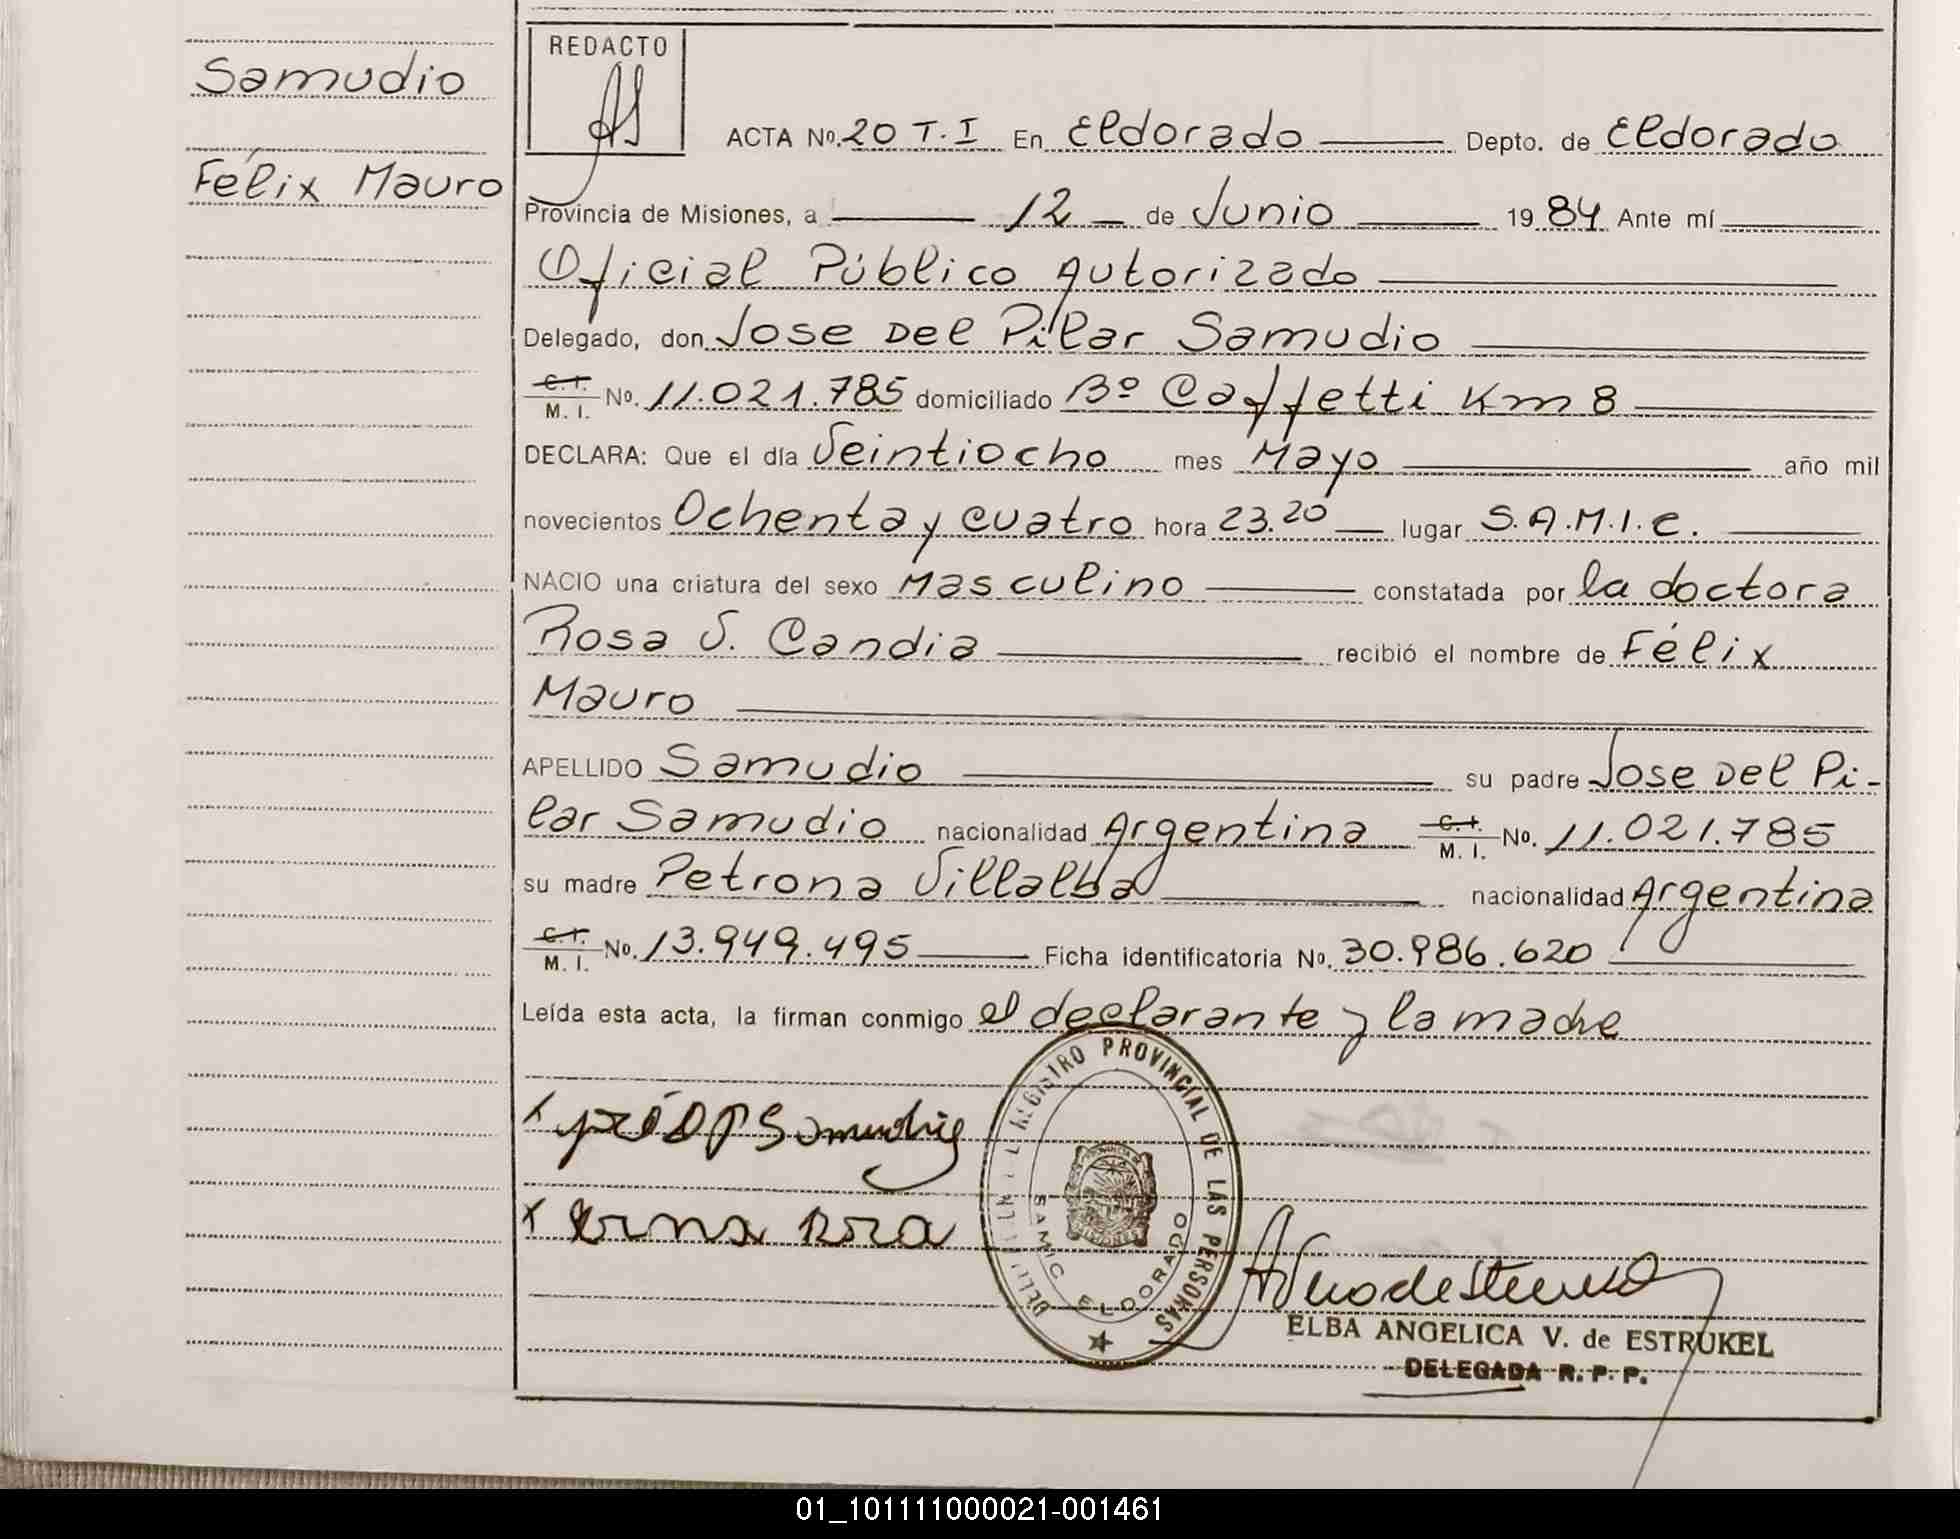 Samudio
Félix Mauro
REDACTO
ACTA Nº. 20 T. I En Eldorado Depto. de Eldorado
Provincia de Misiones, a 12 de Junio 1984 Ante mí
Oficial Público Autorizado
Delegado, don Jose Del Pilar Samudio
C. I. M. I. Nº. 11.021.785 domiciliado Bº Caffetti Km 8
DECLARA: Que el día Veintiocho mes Mayo año mil
novecientos Ochenta y cuatro hora 23.20 lugar S.A.M.I.C.
NACIO una criatura del sexo Masculino constatada por la doctora
Rosa V. Candia recibió el nombre de Félix
Mauro
APELLIDO Samudio su padre Jose Del Pi-
lar Samudio nacionalidad Argentina C. I. M. I. Nº. 11.021.785
su madre Petrona Villalba nacionalidad Argentina
C. I. M. I. Nº. 13.949.495 Ficha identificatoria Nº. 30.986.620
Leída esta acta, la firman conmigo el declarante y la madre
REGISTRO PROVINCIAL DE LAS PERSONAS
SAMIC ELDORADO
ELBA ANGELICA V. de ESTRUKEL
DELEGADA R. P. P.
01_101111000021-001461